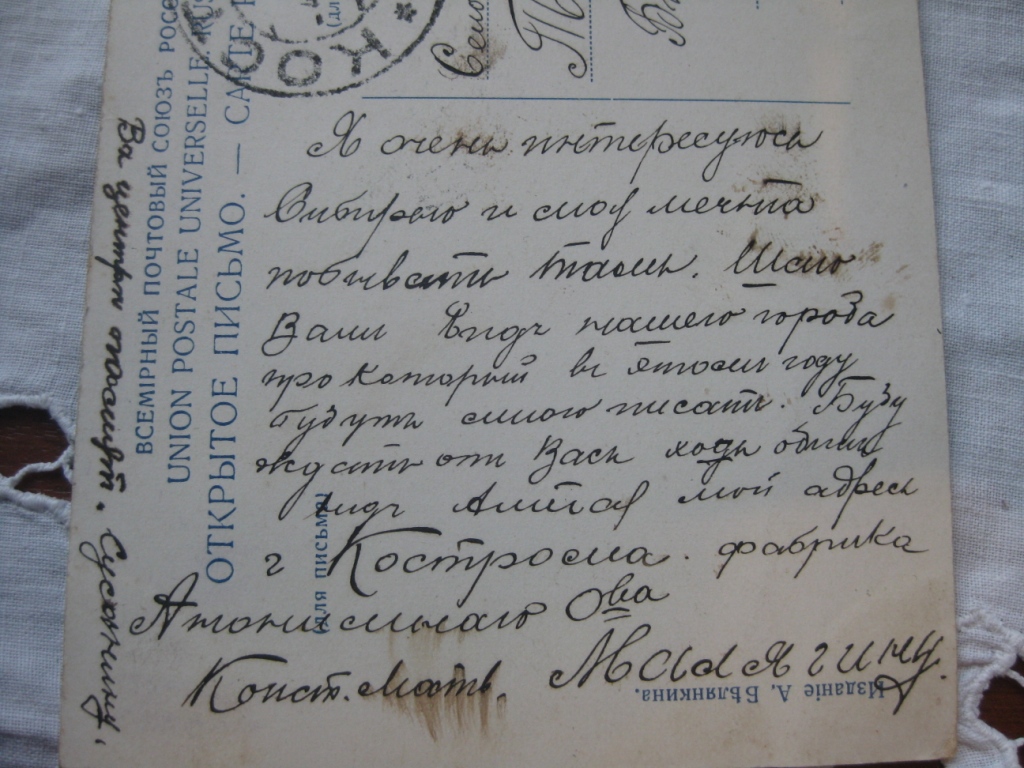 ВСЕМІРНЫЙ ПОЧТОВЫЙ СОЮЗЪ РОСС
UNION POSTALE UNIVERSELLE RUS
ОТКРЫТОЕ ПИСЬМО. — CARTE
(для письма)
Я очень интересуюсь
Сибирью и моя мечта
побывать тамъ. Шлю
Вамъ видъ нашего города
про который въ этомъ году
будутъ много писать. Буду
ждать отъ Васъ хоть одинъ
видъ Алтая мой адресъ
г Кострома. фабрика
Анонимнаго Ова
Конст. Матв. Малягину.
Изданіе А. Бѣлянкина.
Сусанину.
КОС